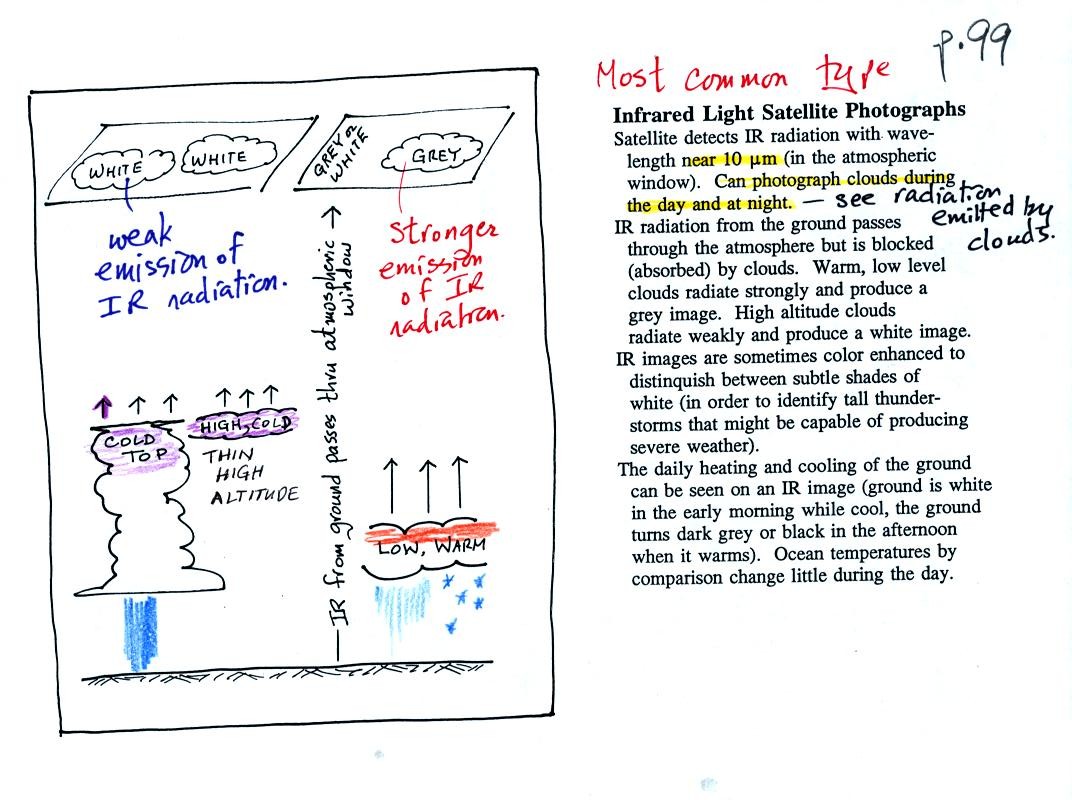 p.99
Most common type
Infrared Light Satellite Photographs
Satellite detects IR radiation with wave-
length near 10 µm (in the atmospheric
window). Can photograph clouds during
the day and at night. — see radiation
emitted by
clouds.
IR radiation from the ground passes
through the atmosphere but is blocked
(absorbed) by clouds. Warm, low level
clouds radiate strongly and produce a
grey image. High altitude clouds
radiate weakly and produce a white image.
IR images are sometimes color enhanced to
distinquish between subtle shades of
white (in order to identify tall thunder-
storms that might be capable of producing
severe weather).
The daily heating and cooling of the ground
can be seen on an IR image (ground is white
in the early morning while cool, the ground
turns dark grey or black in the afternoon
when it warms). Ocean temperatures by
comparison change little during the day.
WHITE
WHITE
GREY or
WHITE
GREY
weak
emission of
IR radiation.
stronger
emission
of IR
radiation.
IR from ground passes thru atmospheric
window
COLD
TOP
HIGH, COLD
THIN
HIGH
ALTITUDE
LOW, WARM